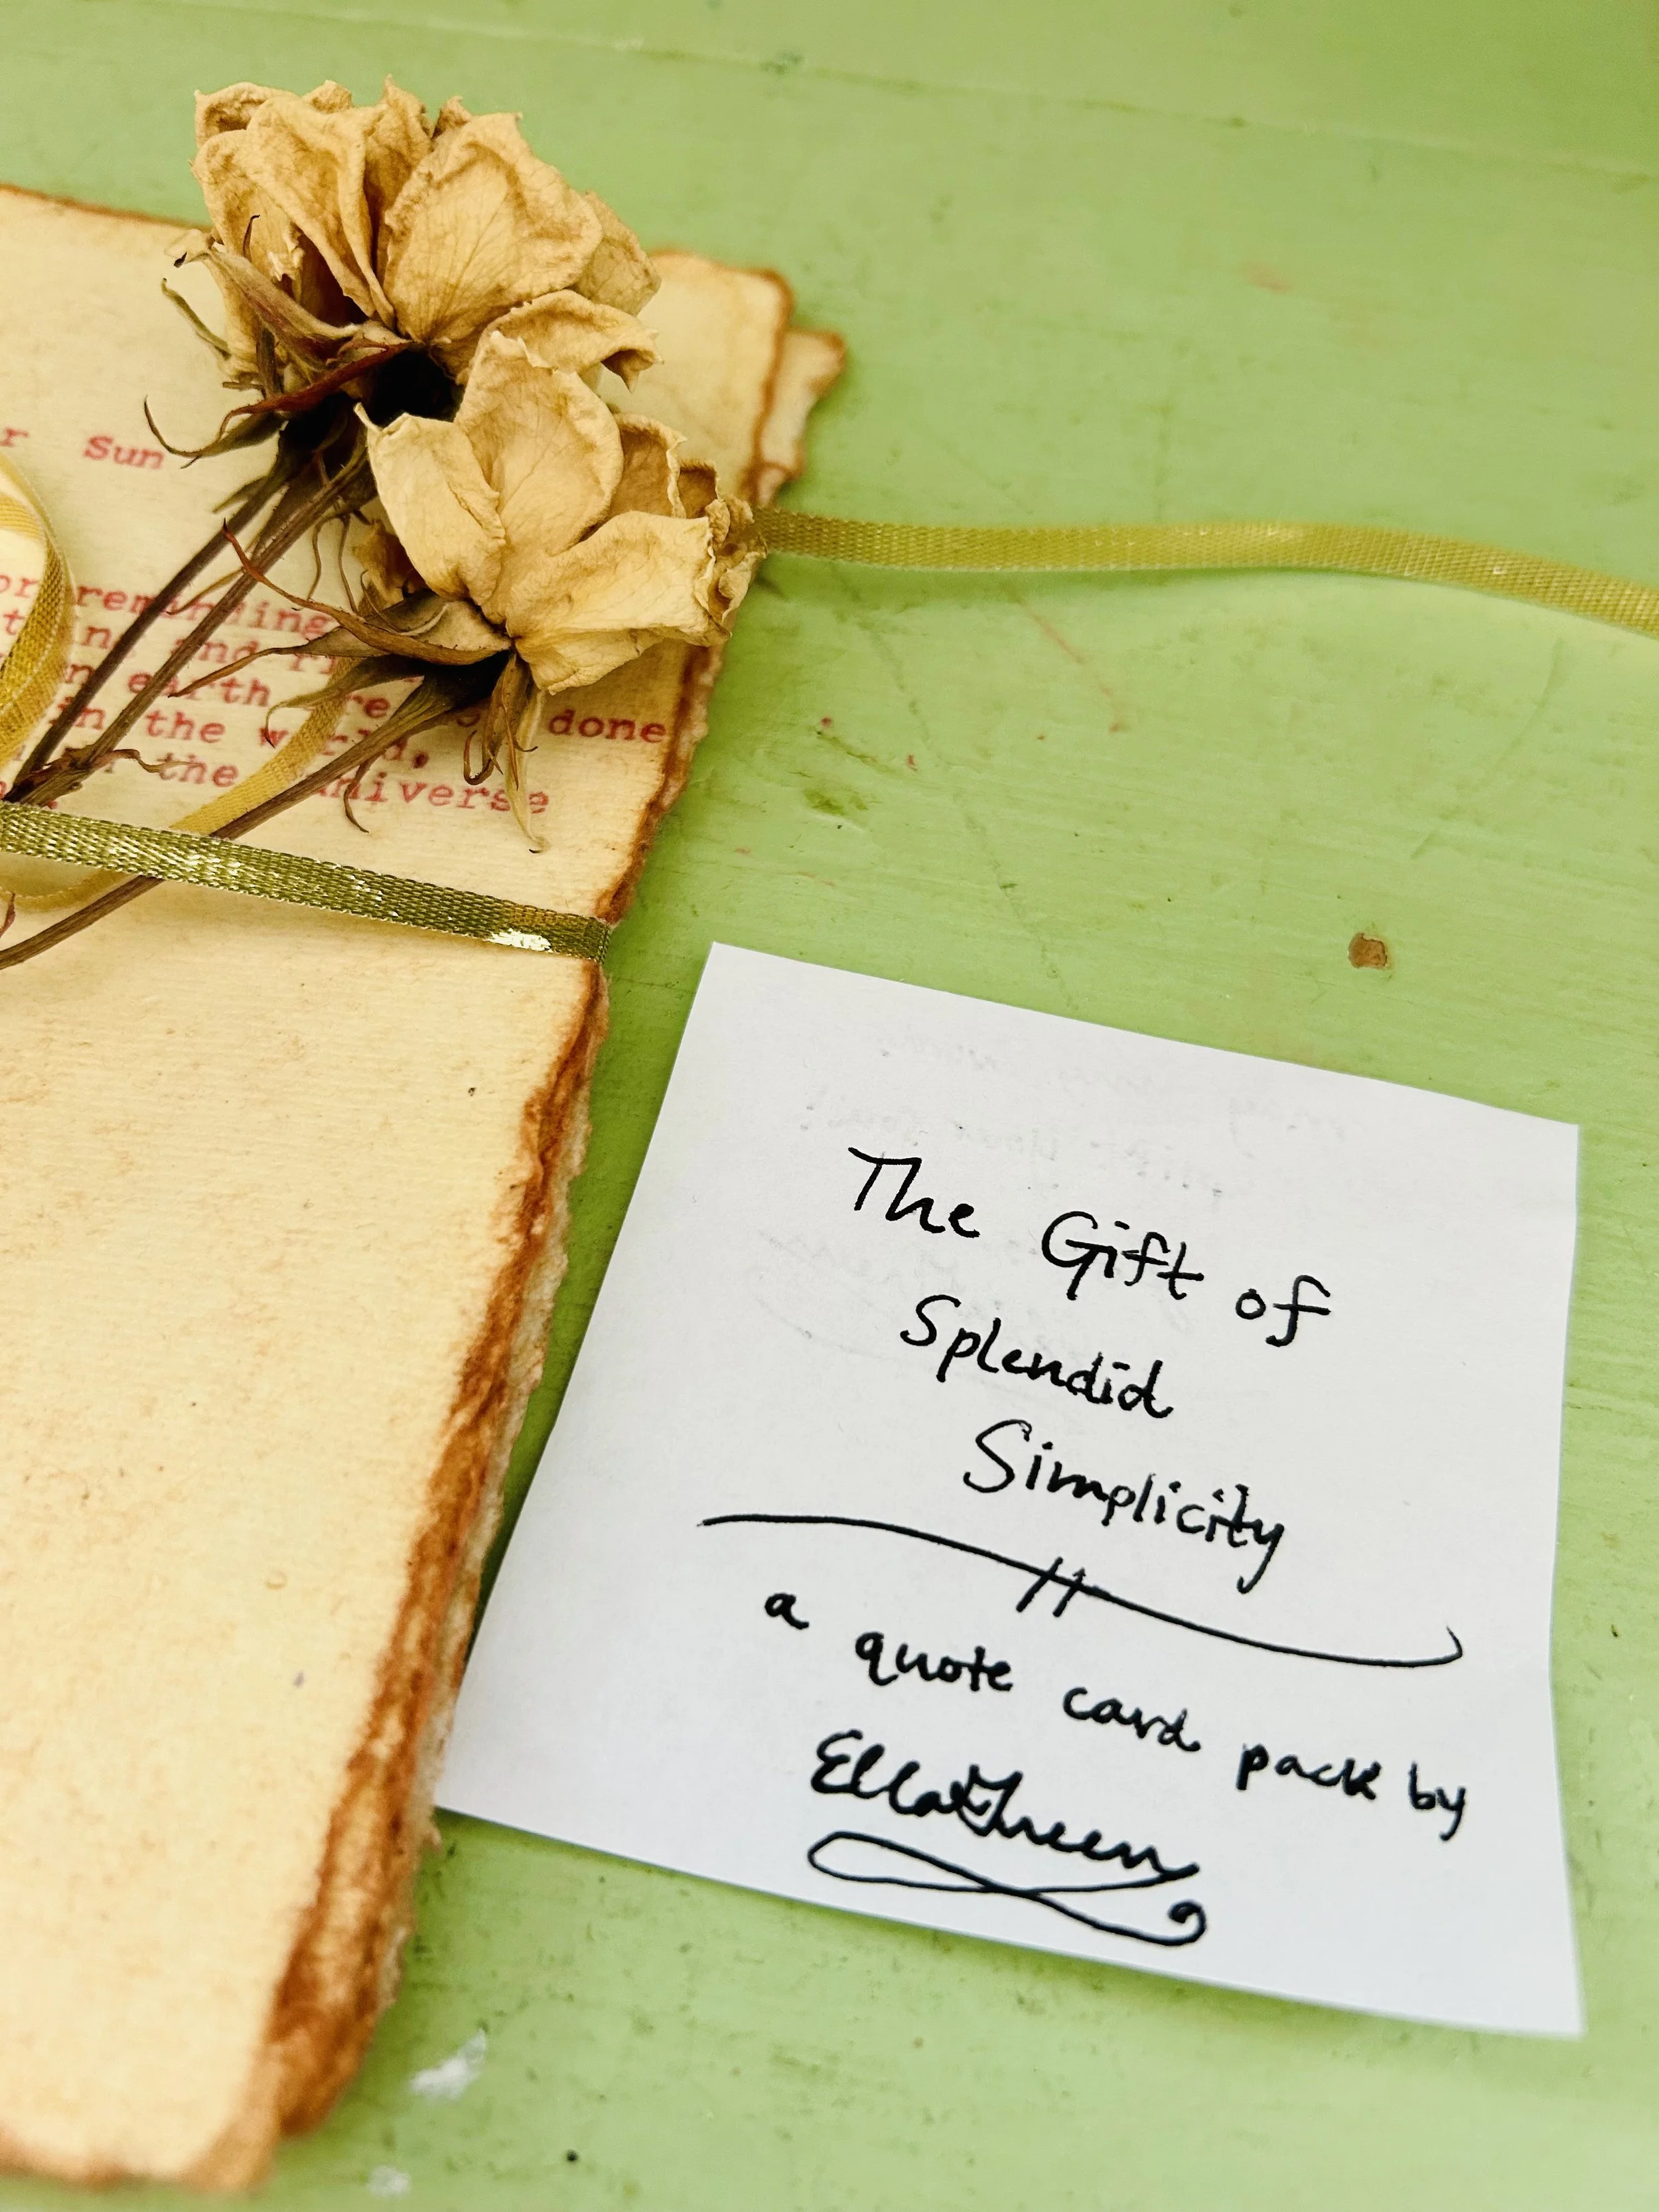 r Sun
reminding
and
earth done
in the world,
the universe
The Gift of
Splendid
Simplicity
a quote card pack by